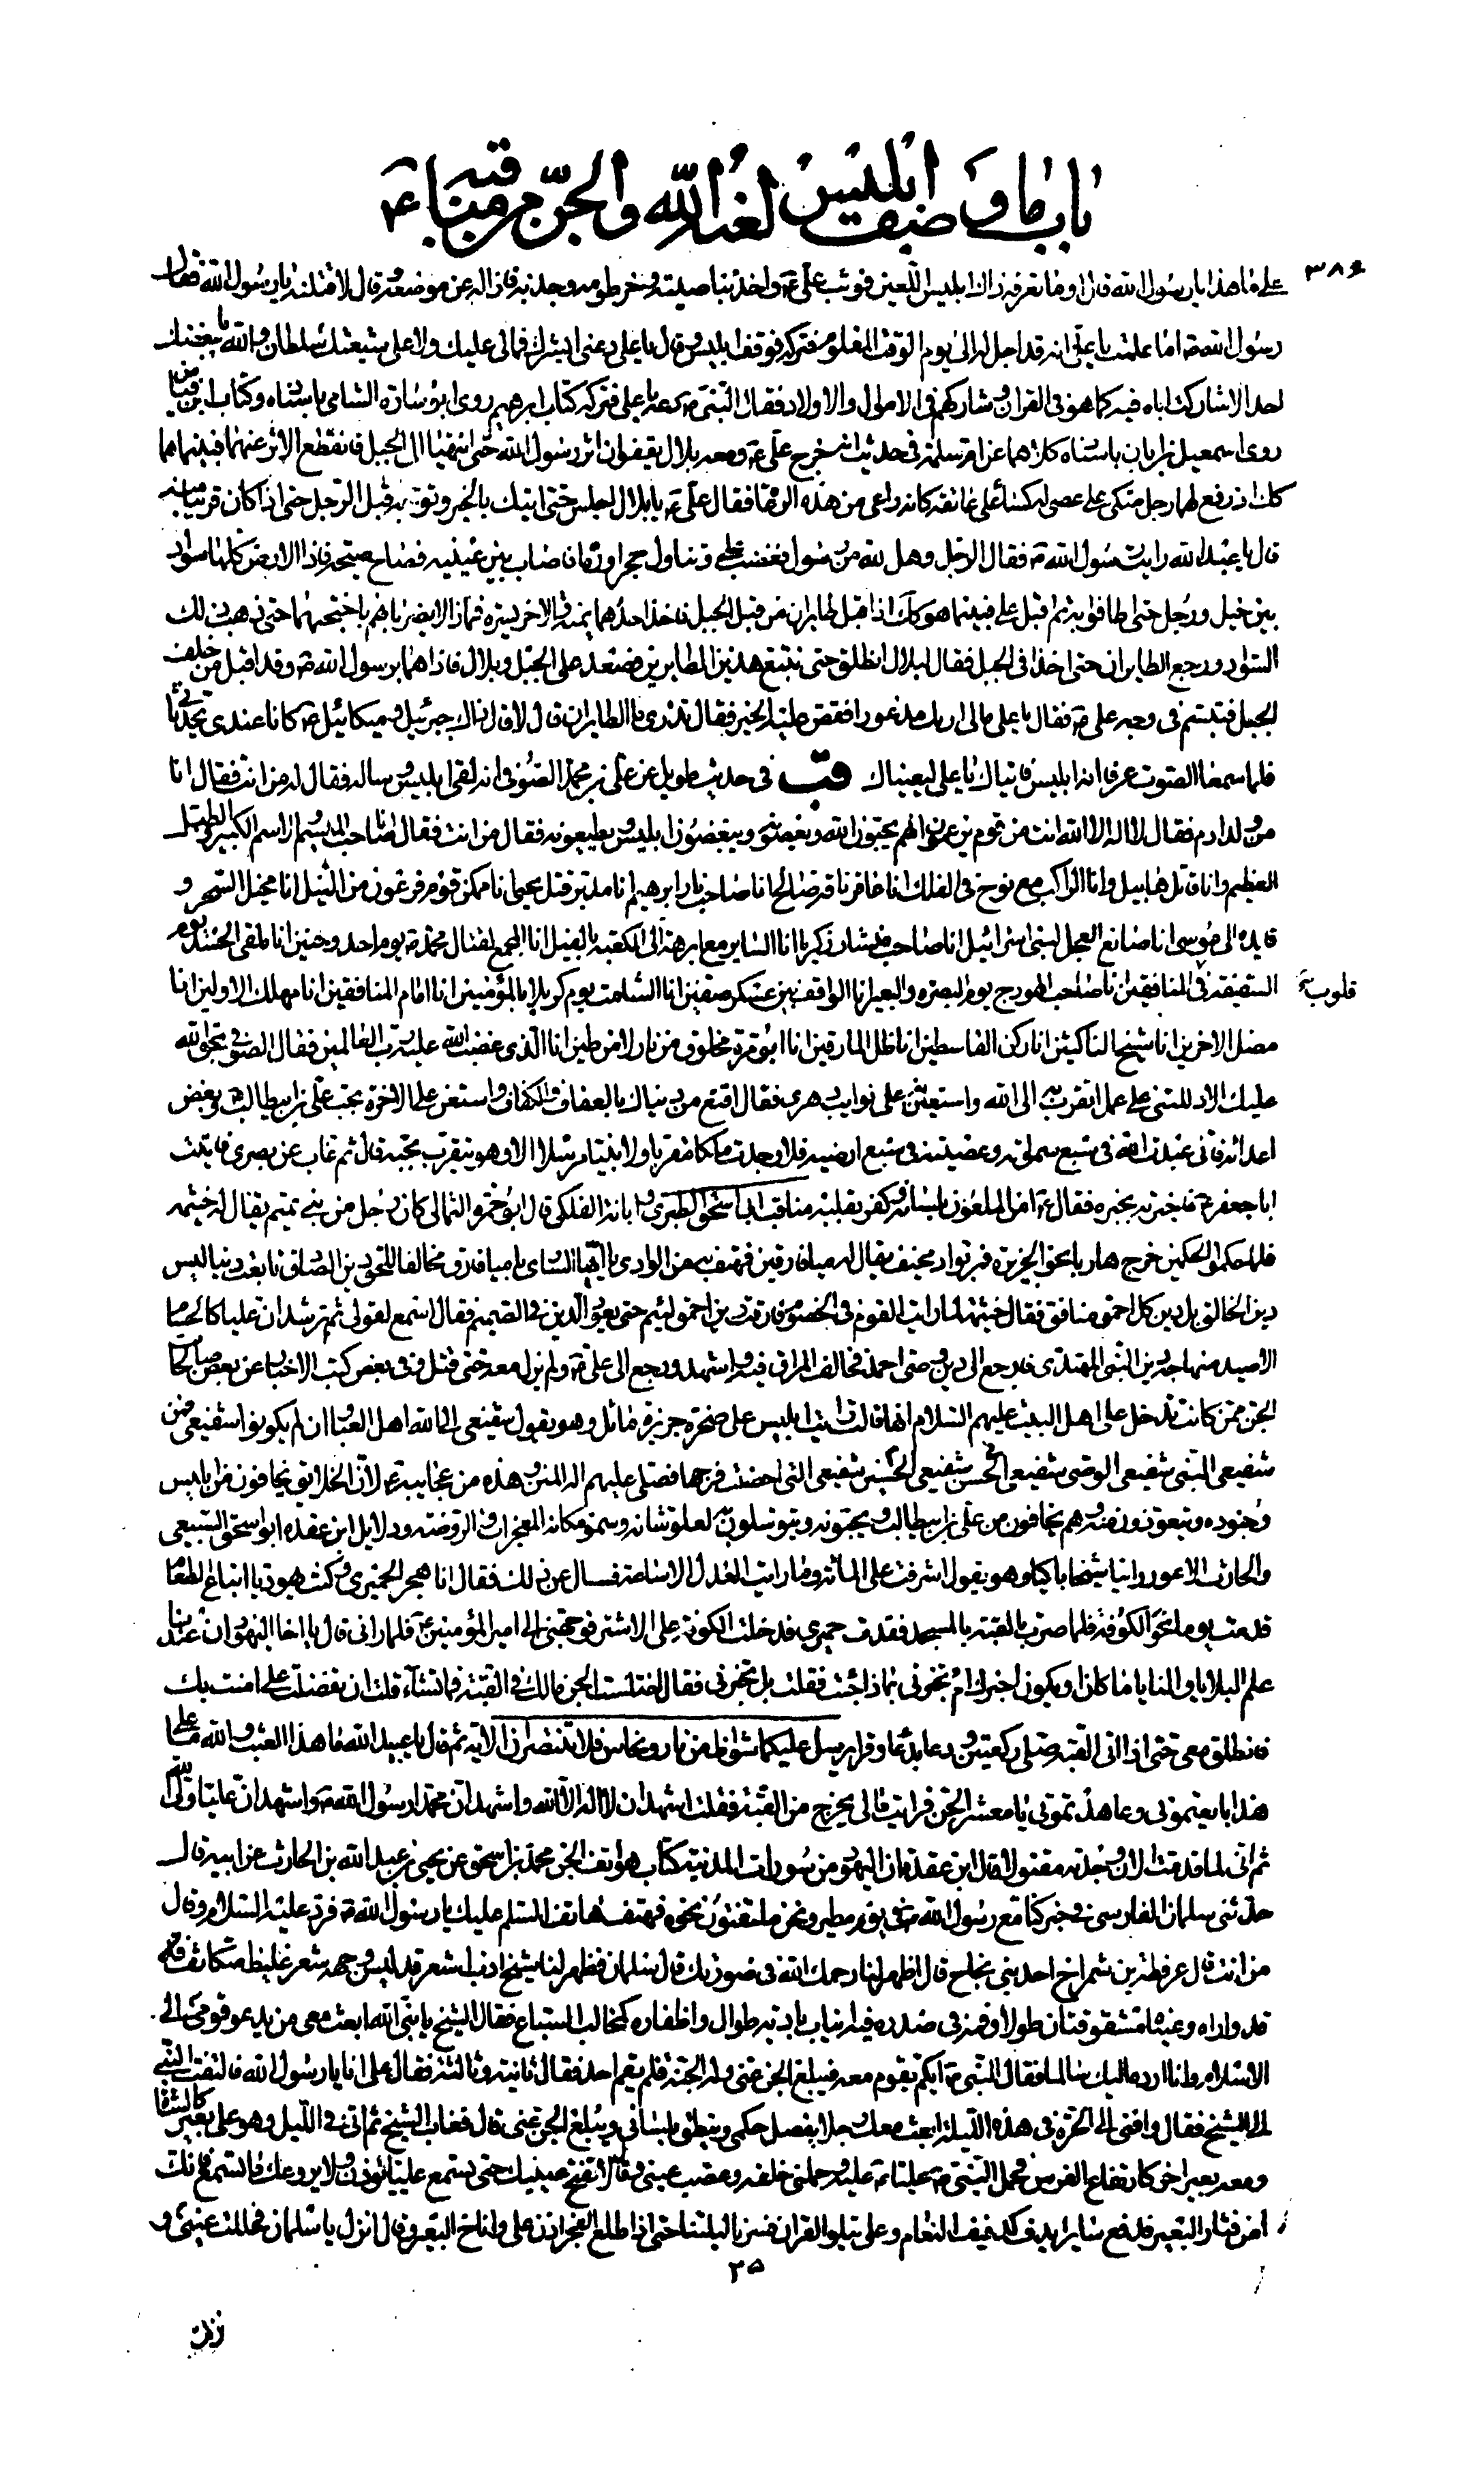 باب ما وصف ابليس لعنه الله والجن من مناقبه ع
٣٨٦
على ما هذا يا رسول الله قال او ما تعرفه ذاك ابليس اللعين فوثب على ع واخذ بناصيته وخرطومه وجذبه فازاله عن موضعه وقال لاقتلنه يا رسول الله فقال
رسول الله ص اما علمت يا على انه قد اجل له الى يوم الوقت المعلوم فتركه فوقف ابليس وقال يا على دعنى ابشرك فمالى عليك ولا على شيعتك سلطان والله ما يبغضك
احد الا شاركت اباه فيه كما هو فى القران وشاركهم فى الاموال والاولاد فقال النبى ص دعه يا على فتركه كتاب ابرهيم روى ابو سارة الشامى باسناده وكتاب ابن فياض
روى اسمعيل بن ابان باسناده كلاهما عن ام سلمة فى حديث انه خرج على ع ومعه بلال يقفوان اثر رسول الله حتى انتهيا الى الجبل فانقطع الاثر عنهما فبينهما هما
كذلك اذ رفع لهما رجل متكى على عصى له كساء على عاتقه كانه راعى من هذه الرعاة فقال على ع يا بلال اجلس حتى اتيك بالخبر وتوجه قبل الرجل حتى اذا كان قريبا منه
قال يا عبد الله رايت رسول الله ص فقال الرجل وهل لله من رسول فغضب على وتناول حجرا ورماه فاصاب بين عينيه فصاح صيحة فاذا الارض كلها سواد
بين خيل ورجل حتى اطافوا به ثم اقبل على فبينما هو كذلك اذ اقبل طايران من قبل الجبل فاخذ احدهما يمنة والاخر يسرة فما زالا يضربانهم باجنحتهما حتى ذهب ذلك
السواد ورجع الطايران حتى اخذا فى الجبل فقال لبلال انطلق حتى نتبع هذين الطايرين فصعد على الجبل وبلال فاذا هما برسول الله ص وقد اقبل من خلف
الجبل فتبسم فى وجه على ع فقال يا على مالى اراك مذعورا فقص عليه الخبر فقال تدرى ما الطايران قال لا قال ذاك جبرئيل وميكائيل ع كانا عندى يحدثانى
فلما سمعا الصوت عرفا انه ابليس فاتياك يا على ليعيناك قب فى حديث طويل عن على بن محمد الصوفى انه لقى ابليس وساله فقال له من انت فقال انا
من ولد ادم فقال لا اله الا الله انت من قوم يزعمون انهم يحبون الله ويعصونه ويبغضون ابليس ويطيعونه فقال من انت فقال انا صاحب الميسم والاسم الكبير والطبل
العظيم وانا قاتل هابيل وانا الراكب مع نوح فى الفلك انا عاقر ناقة صالح انا صاحب نار ابرهيم انا مدبر قتل يحيى انا ممكن قوم فرعون من النيل انا مخيل السحر و
قايده الى موسى انا صانع العجل لبنى اسرائيل انا صاحب منشار زكريا انا الساير مع ابرهة الى الكعبة بالفيل انا المجمع لقتال محمد ص يوم احد وحنين انا ملقى الحسد يوم
السقيفة فى المنافقين انا صاحب الهودج يوم البصرة والبعير انا الواقف بين عسكر صفين انا الشامت يوم كربلا بالمؤمنين انا امام المنافقين انا مهلك الاولين انا
قلوب
مضل الاخرين انا شيخ الناكثين انا ركن القاسطين انا ظل المارقين انا ابو مرة مخلوق من نار لا من طين انا الذى غضب الله عليه رب العالمين فقال الصوفى بحق الله
عليك الا دللتنى على عمل اتقرب به الى الله واستعين به على نوايب دهرى فقال اقنع من دنياك بالعفاف والكفاف واستعن على الاخرة بحب على بن ابيطالب وبغض
اعدائه فانى عبدت الله فى سبع سمواته وعصيته فى سبع ارضيه فلا وجدت ملكا مقربا ولا نبيا مرسلا الا وهو يتقرب بحبه قال ثم غاب عن بصرى فاتيت
ابا جعفر ع فاخبرته بخبره فقال ع امن الملعون بلسانه وكفر بقلبه مناقب ابى اسحق الطبرى وابانة الفلكى قال ابو حمزة الثمالى كان رجل من بنى تميم يقال له خيثمة
فلما حكموا الحكمين خرج هاربا نحو الجزيرة فمر بواد مخيف يقال له ميافارقين فهتف به من الوادى يا ايها السارى بميافارق مخالفا للحق دين الصادق تابعت دينا ليس
دين الخالق بل دين كل احمق منافق فقال خيثمة لما رايت القوم فى الخصوم فارقت دين احمق لئيم حتى يعود الدين فى الصميم فقال اسمع لقولى ثم ترشد ان عليا كالحسام
الاصيد منهاجه دين النبى المهتدى فارجع الى دين وصى احمد فخالف المراق فيه واشهد ورجع الى على ع ولم يزل معه حتى قتل وفى بعض كتب الاخبار عن بعض صالحات
الجن ممن كانت تدخل على اهل البيت عليهم السلام انها قالت رايت ابليس على صخرة جزيرة ماثلا وهو يقول شفيعى الى الله اهل العبا وان لم يكونوا شفيعى فمن
شفيعى النبى شفيعى الوصى شفيعى الحسن شفيعى الحسين شفيعى التى احصنت فرجها فصلى عليهم اله المنن وهذه من عجايبه ع لان الخلايق يخافون من ابليس
وجنوده ويتعوذون منه وهم يخافون من على بن ابيطالب ويحبونه ويتوسلون به لعلو شانه وسمو مكانه المعجزات والروضة ودلايل ابن عقدة ابو اسحق السبيعى
والحارث الاعور راينا شيخا باكيا وهو يقول اشرفت على المائة وما رايت العدل الا ساعة فسال عن ذلك فقال انا هجر الحميرى وكنت يهوديا ابتاع الطعام
قدمت يوما نحو الكوفة فلما صرت بالقبة بالمسجد فقدت حميرى فدخلت الكوفة على الاشتر فوجهنى الى امير المؤمنين ع فلما رانى قال يا اخا اليهود ان عندنا
علم البلايا والمنايا ما كان او يكون اخبرك ام تخبرنى بماذا جئت فقلت بل تخبرنى فقال اختلست الجن مالك فى القبة فما تشاء قلت ان تفضلت على امنت بك
فانطلق معى حتى اذا اتى القبة وصلى ركعتين ودعا بدعاء وقرا يرسل عليكما شواظ من نار ونحاس فلا تنتصران الاية ثم قال يا عبيد الله ما هذا العبث والله ما على
هذا بايعتمونى وعاهدتمونى يا معشر الجن فرايت مالى يخرج من القبة فقلت اشهد ان لا اله الا الله واشهد ان محمدا رسول الله ص واشهد ان عليا ولى الله
ثم انى لما قدمت الان وجدته مقتولا قال ابن عقدة ان اليهودى من سورات المدينة كتاب هواتف الجن محمد بن اسحق عن يحيى بن عبد الله بن الحارث عن ابيه قال
حدثنى سلمان الفارسى فى خبر كنا مع رسول الله ص فى يوم مطير ونحن ملتفتون نحوه فهتف هاتف السلم عليك يا رسول الله ص فرد عليه السلام وقال
من انت قال عرفطة بن شمراخ احد بنى نجاح قال اظهر لنا رحمك الله فى صورتك قال سلمان فظهر لنا شيخ اذب اشعر قد لبس وجهه شعر غليظ متكاثف
قد واراه وعيناه مشقوقتان طولا وفمه فى صدره فيه انياب بادية طوال واظفاره كمخالب السباع فقال الشيخ يا نبى الله ابعث معى من يدعو قومى الى
الاسلام وانا ارده اليك سالما فقال النبى ص ايكم يقوم معه فيبلغ الجن عنى وله الجنة فلم يقم احد فقال ثانية وثالثة فقال على انا يا رسول الله فالتفت النبى
الى الشيخ فقال وافنى الى الحرة فى هذه الليلة ابعث معك رجلا يفصل حكمى وينطق بلسانى ويبلغ الجن عنى قال فغاب الشيخ ثم اتى فى الليل وهو على بعير كالشاة
ومعه بعير اخر كارتفاع الفرس فحمل النبى ص عليا ع عليه وحملنى خلفه وعصب عينى وقال لا تفتح عينيك حتى تسمع عليا يؤذن ولا يروعك ما تسمع فانك
امن فثار البعير فدفع سايرا يدف كدفيف النعام وعلى يتلو القران فسرنا ليلتنا حتى اذا طلع الفجر اذن على واناخ البعير وقال انزل يا سلمان فحللت عينى و
٣٥
نزلت